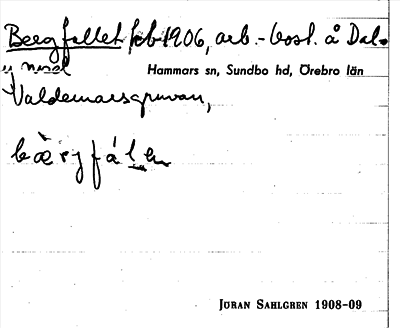 Bergfallet feb 1906, arb.-bost. å Dal-
Hammars sn, Sundbo hd, Örebro län
Valdemarsgruvan,
bæ̀rjfálen
JÖRAN SAHLGREN 1908-09